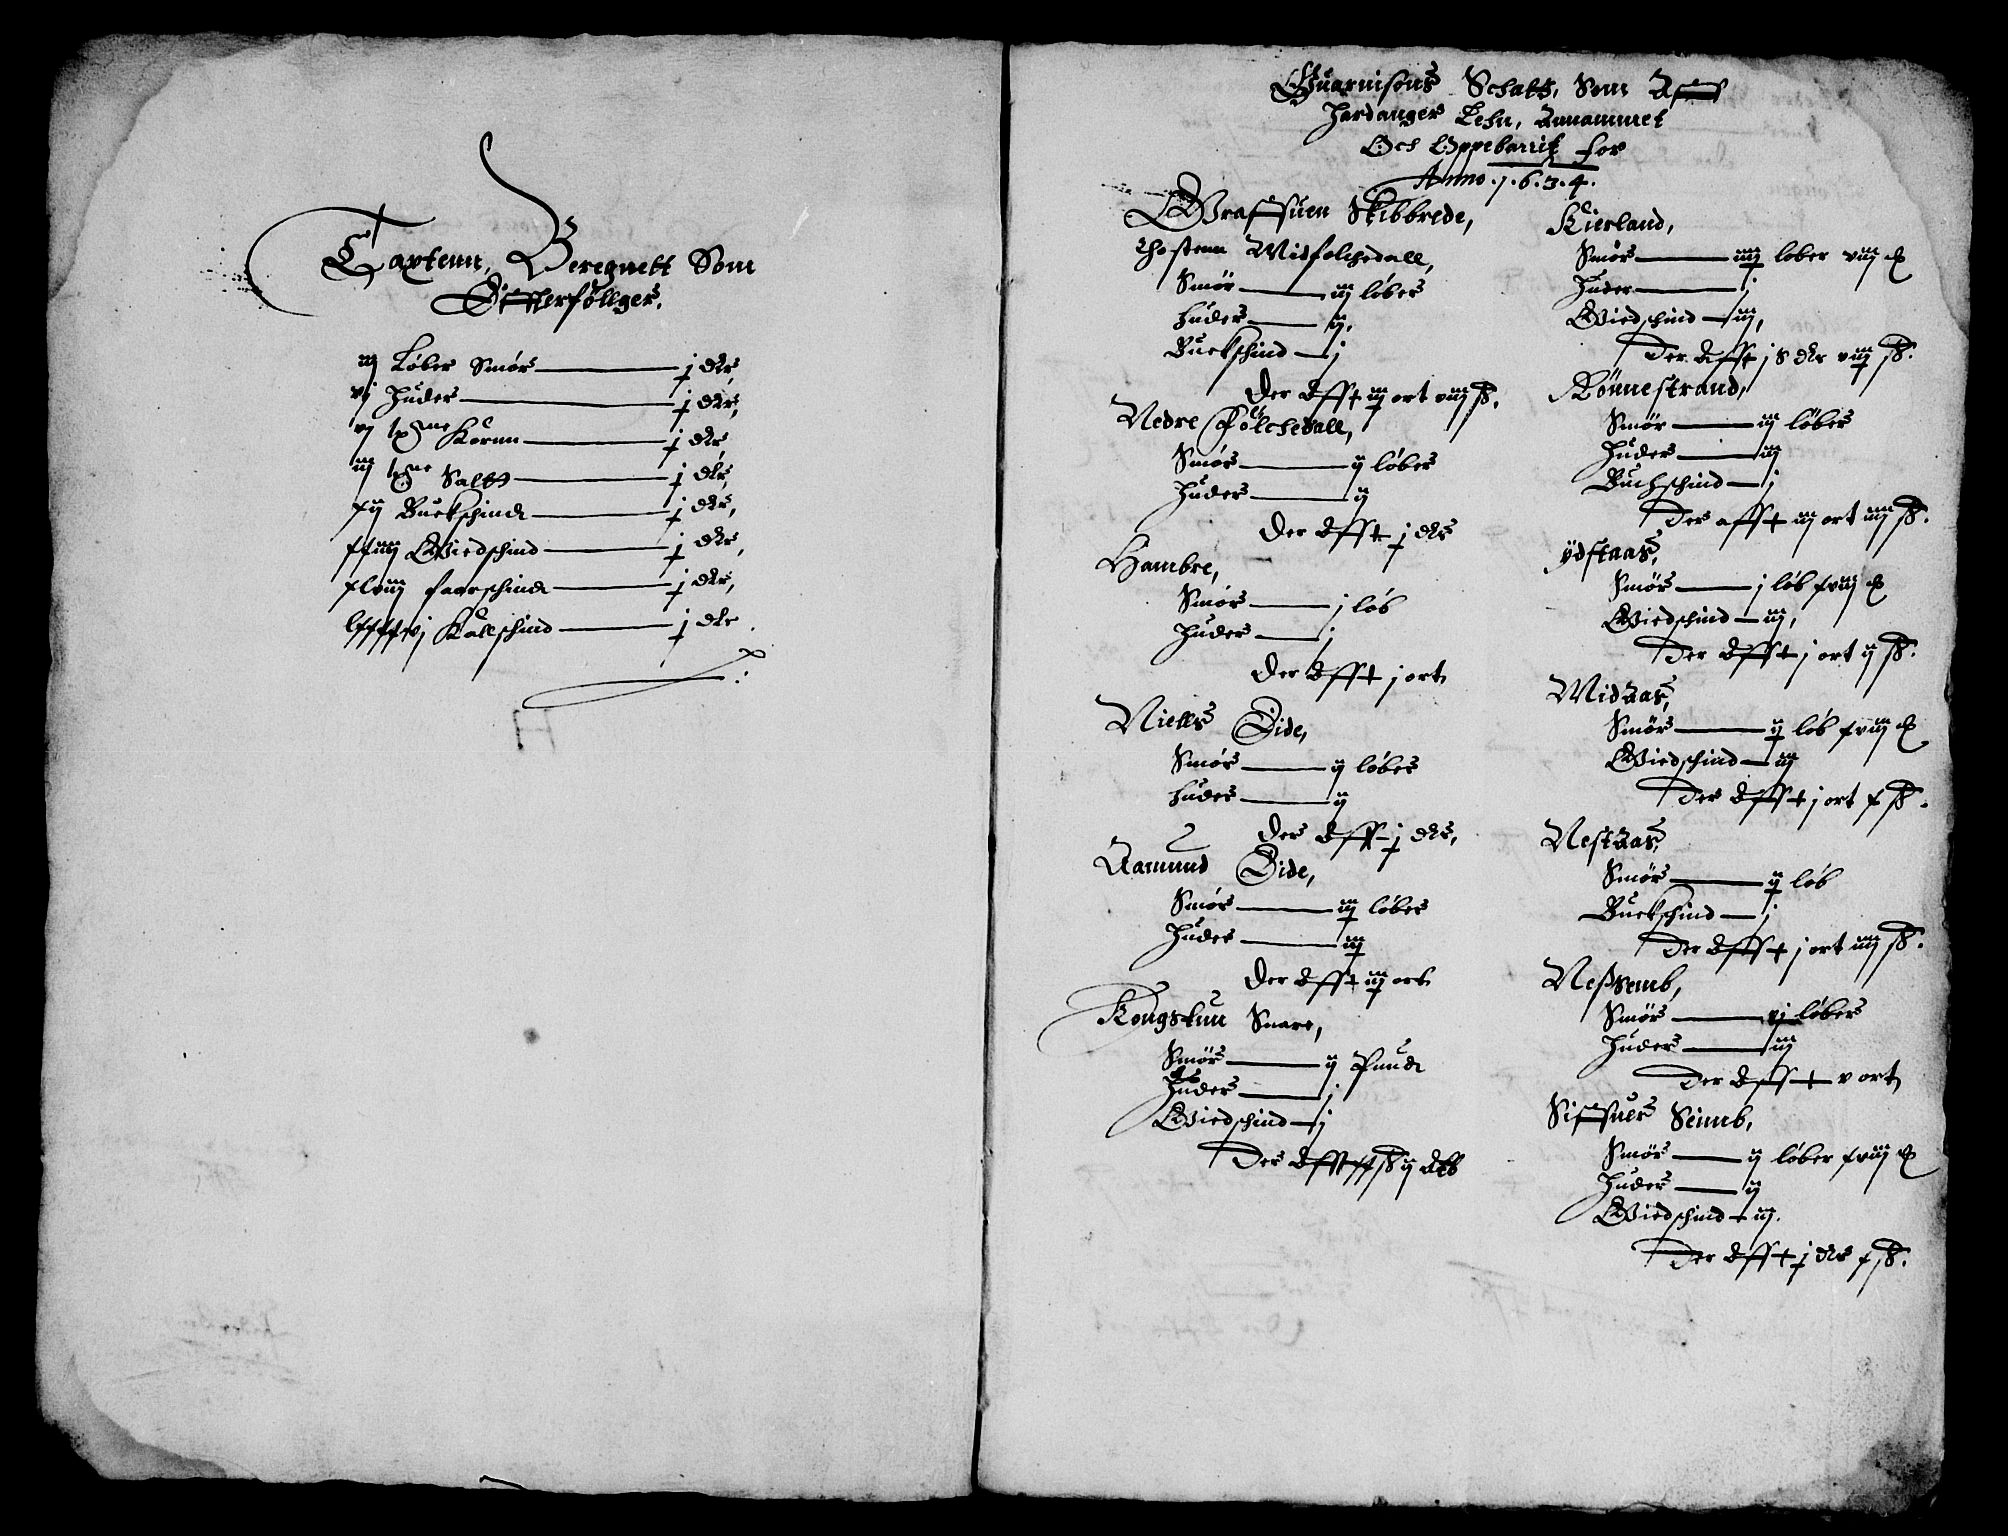 Taxtenn, Beregnett Som
Effterföllger.
iij Løber Smør — j dlr,
vj Huder — j dlr,
vj tønne Korn — j dlr,
iij tønne Saltt — j dlr,
xij Buckschind — j dlr,
xxiiij Wiedschind — j dlr,
xlviij faarschind — j dlr,
lxxxxvj Kallschind — j dlr.
Guarnisons Schatt, Som Aff
Hardanger Lehn, Annammet
Och Oppebarrit for
Anno .1.6.3.4.
Graffsuen Skibbrede,
Thostenn Midfolchedall,
Smör — iij løber
huder — ij,
Buckschind — j
Der Aff iij ort viij ß.
Nedre Folchedall,
Smør — ij løber
Huder — ij
Der Aff j dlr
Hambre,
Smør — j løb
Huder — j
Der Aff j ort
Niells Eide,
Smør — ij løber
huder — ij
Der Aff j dlr,
Aamund Eide,
Smør — iij løber
Huder — iij
Der Aff iij ort
Kongstun Snare,
Smör — ij Pund
Huder — j
Wiedschind — j
Der Aff xx ß ij alb
Kierland,
Smør — iiij løber viij
Huder — j
Wiedschind — iij,
Der Aff dlr viij ß.
Rönnestrand,
Smør — iij løber
Huder — iij
Buchschind — j
Der aff iij ort iiij ß.
ÿdstaas,
Smør — j løb xviij
Wiedschind — iij,
Der Aff j ort ij ß.
Midaas,
Smør — ij løb xviij
Wiedschind — iij
Der Aff j ort x ß.
Nestaas,
Smør — ij løb
Buckschind — j
Der Aff j ort iiij ß.
Neßemb,
Smør — vj løber
Huder — iij
Der Aff v ort
Siffsuer Seimb,
Smør — ij løber xviij
Huder — ij
Wiedschind — iij.
Der Aff j dlr x ß.